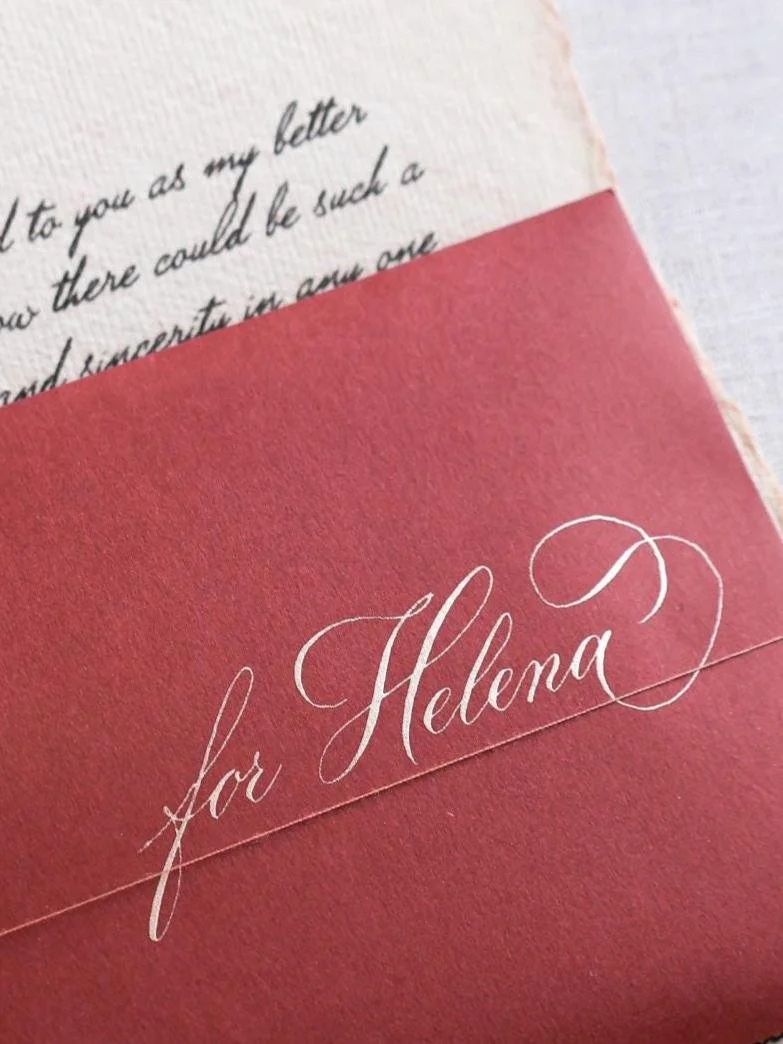 to you as my better
there could be such a
and sincerity in any one
for Helena